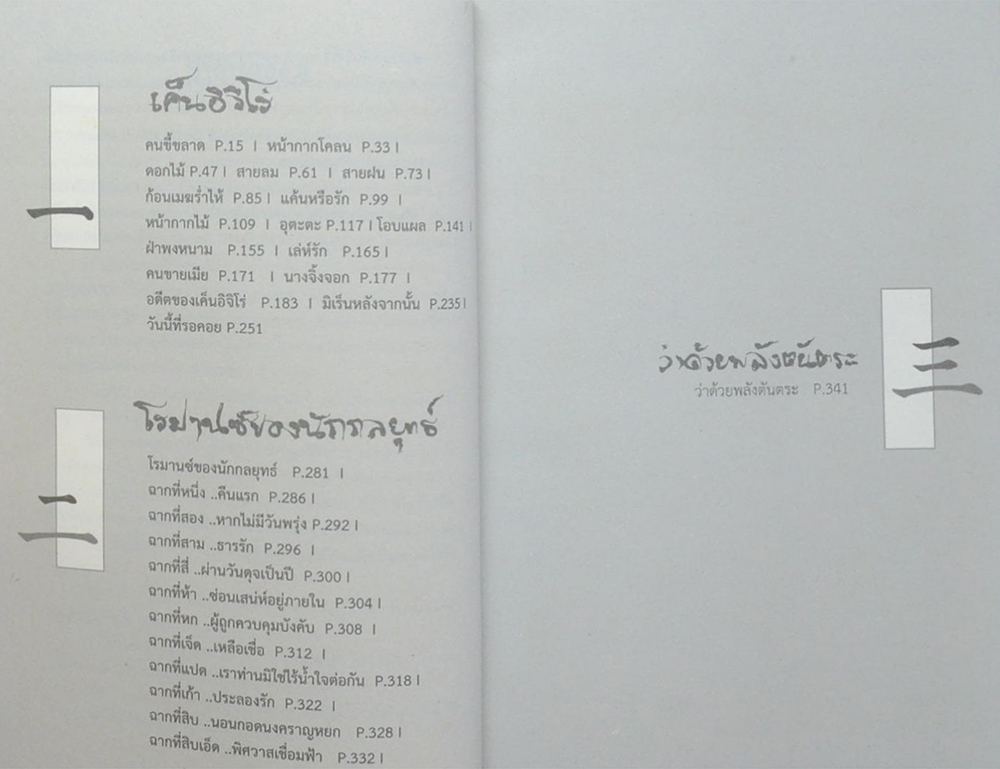 一
เค็นอิจิโร่
คนขี้ขลาด P.15 | หน้ากากโคลน P.33 |
ดอกไม้ P.47 | สายลม P.61 | สายฝน P.73 |
ก้อนเมฆร่ำไห้ P.85 | แค้นหรือรัก P.99 |
หน้ากากไม้ P.109 | อุตะตะ P.117 | โอบแผล P.141 |
ฝ่าพงหนาม P.155 | เล่ห์รัก P.165 |
คนขายเมีย P.171 | นางจิ้งจอก P.177 |
อดีตของเค็นอิจิโร่ P.183 | มิเร็นหลังจากนั้น P.235 |
วันนี้ที่รอคอย P.251
二
โรมานซ์ของนักกลยุทธ์
โรมานซ์ของนักกลยุทธ์ P.281 |
ฉากที่หนึ่ง ..คืนแรก P.286 |
ฉากที่สอง ..หากไม่มีวันพรุ่ง P.292 |
ฉากที่สาม ..ธารรัก P.296 |
ฉากที่สี่ ..ผ่านวันดุจเป็นปี P.300 |
ฉากที่ห้า ..ซ่อนเสน่ห์อยู่ภายใน P.304 |
ฉากที่หก ..ผู้ถูกควบคุมบังคับ P.308 |
ฉากที่เจ็ด ..เหลือเชื่อ P.312 |
ฉากที่แปด ..เราท่านมิใช่ไร้น้ำใจต่อกัน P.318 |
ฉากที่เก้า ..ประลองรัก P.322 |
ฉากที่สิบ ..นอนกอดนงคราญหยก P.328 |
ฉากที่สิบเอ็ด ..พิศวาสเชื่อมฟ้า P.332 |
三
ว่าด้วยพลังตันตระ
ว่าด้วยพลังตันตระ P.341